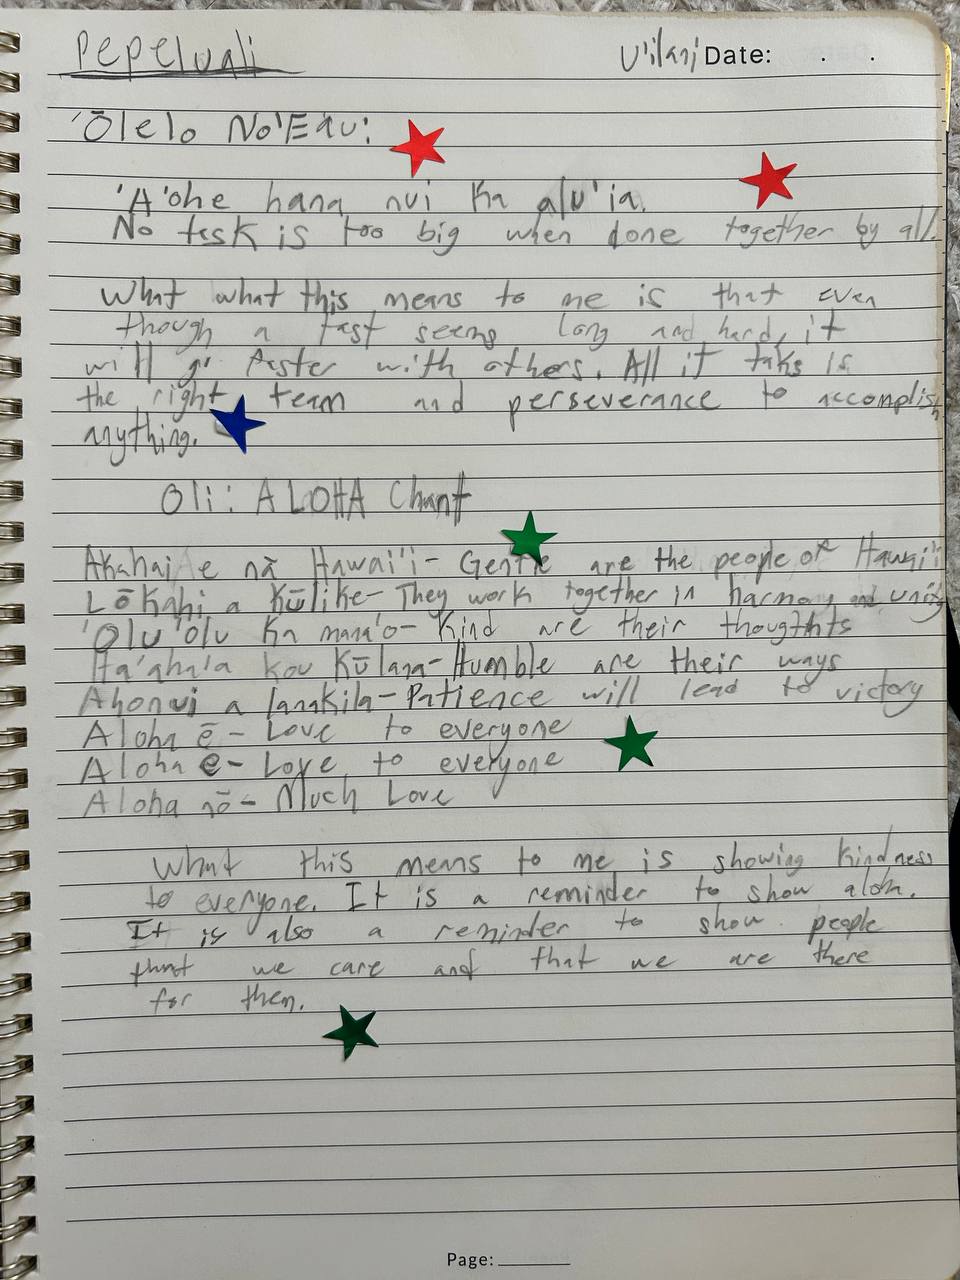 Pepeluali U'ilani Date: . .
'Ōlelo No'Eau:
'A'ohe hana nui ka alu'ia.
No task is too big when done together by all.
What what this means to me is that even
though a tast seems long and hard, it
will go faster with others. All it taks is
the right team and perseverance to accomplish
anything.
Oli: ALOHA Chant
Akahai e nā Hawai'i- Gentle are the people of Hawai'i
Lōkahi a Kūlike- They work together in harmony and unity
'Olu'olu ka mana'o- Kind are their thoughts
Ha'aha'a kou Kūlana- Humble are their ways
Ahonui a lanakila- Patience will lead to victory
Aloha ē - Love to everyone
Aloha e- Love to everyone
Aloha nō- Much Love
What this means to me is showing kindness
to everyone. It is a reminder to show aloh.
It is also a reminder to show people
that we care and that we are there
for them.
Page: